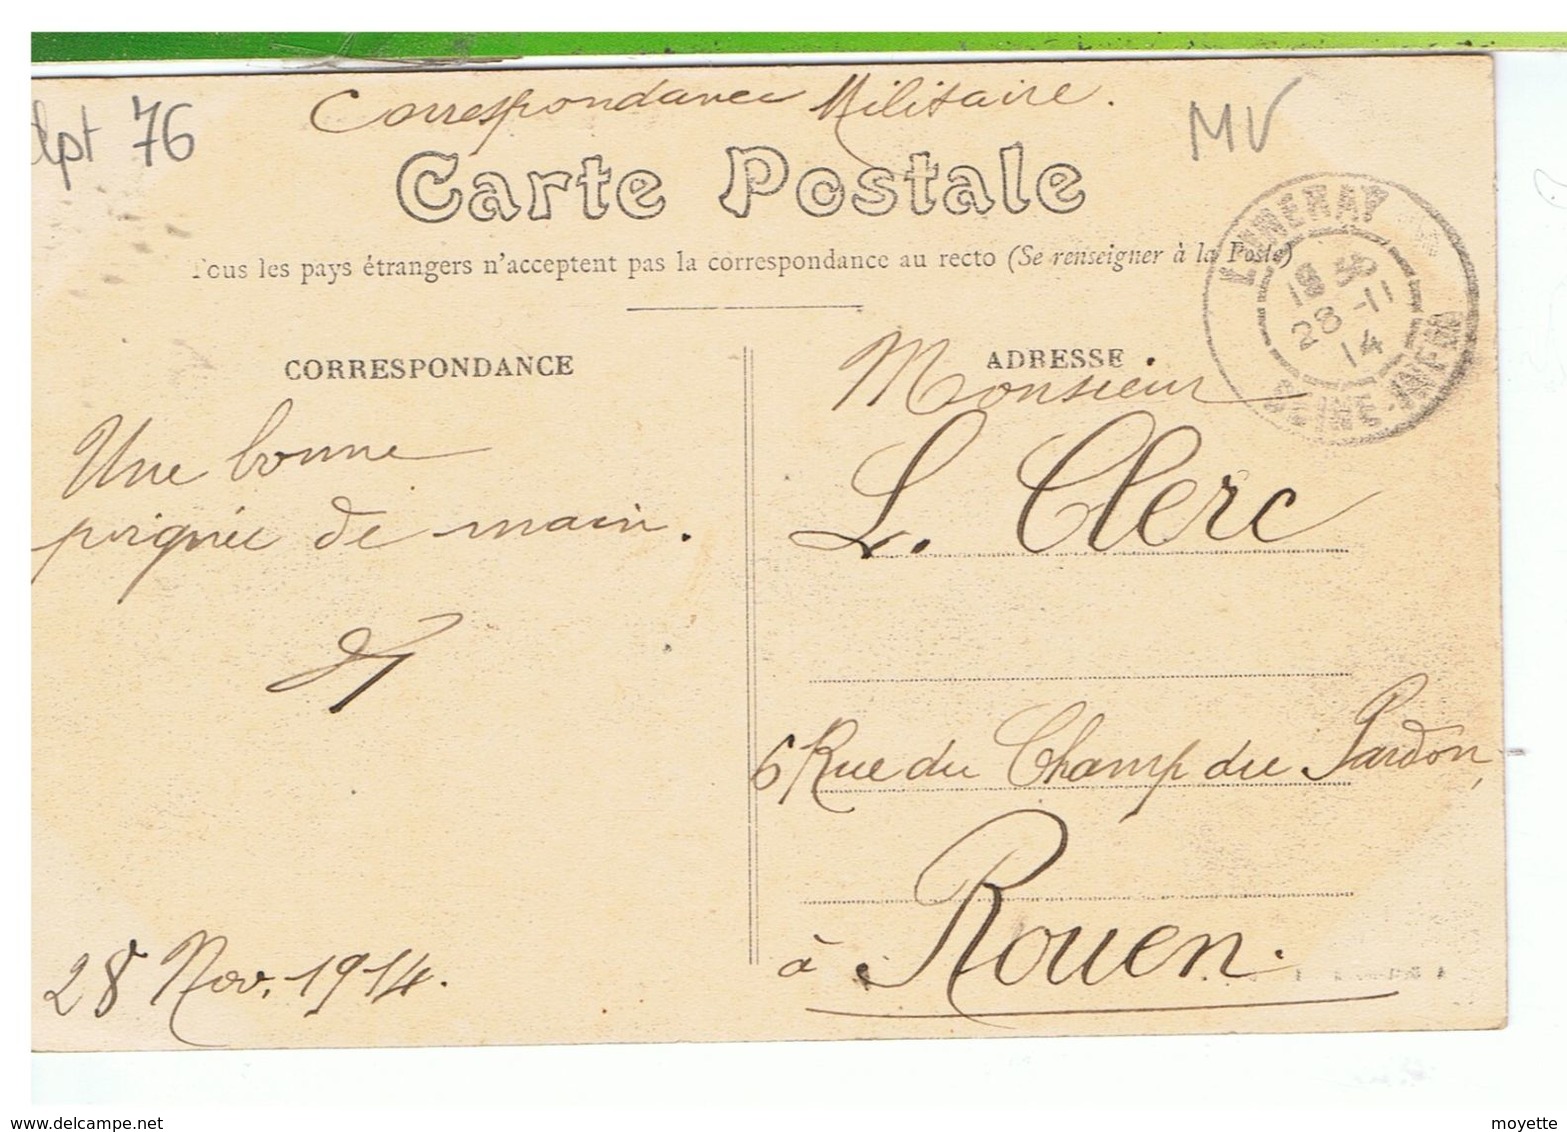 Correspondance Militaire.
dpt 76
MV
Carte Postale
Tous les pays étrangers n'acceptent pas la correspondance au recto (Se renseigner à la Poste)
LUNERAY
28-11
14
SEINE-INFRE
CORRESPONDANCE
ADRESSE
Une bonne
poignée de main.
28 Nov. 1914.
Monsieur
L. Clerc
6 Rue du Champ du Pardon,
à Rouen.
moyette